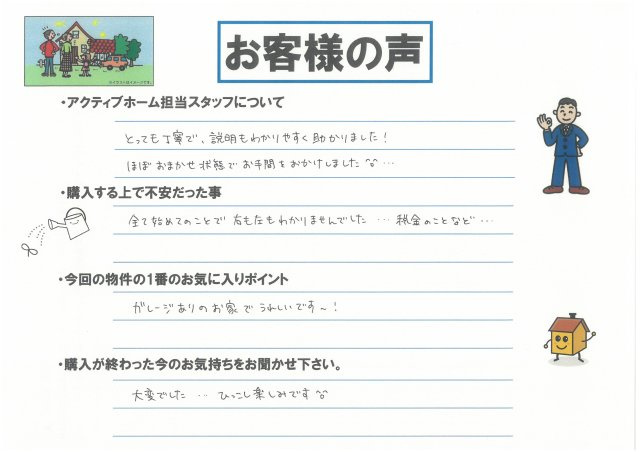 お客様の声
※イラストはイメージです。
・アクティブホーム担当スタッフについて
とっても丁寧で、説明もわかりやすく助かりました!
ほぼおまかせ状態でお手間をおかけしました^^…
・購入する上で不安だった事
全て始めてのことで右も左もわかりませんでした…税金のことなど…
・今回の物件の1番のお気に入りポイント
ガレージありのお家でうれしいです~!
・購入が終わった今のお気持ちをお聞かせ下さい。
大変でした…ひっこし楽しみです^^